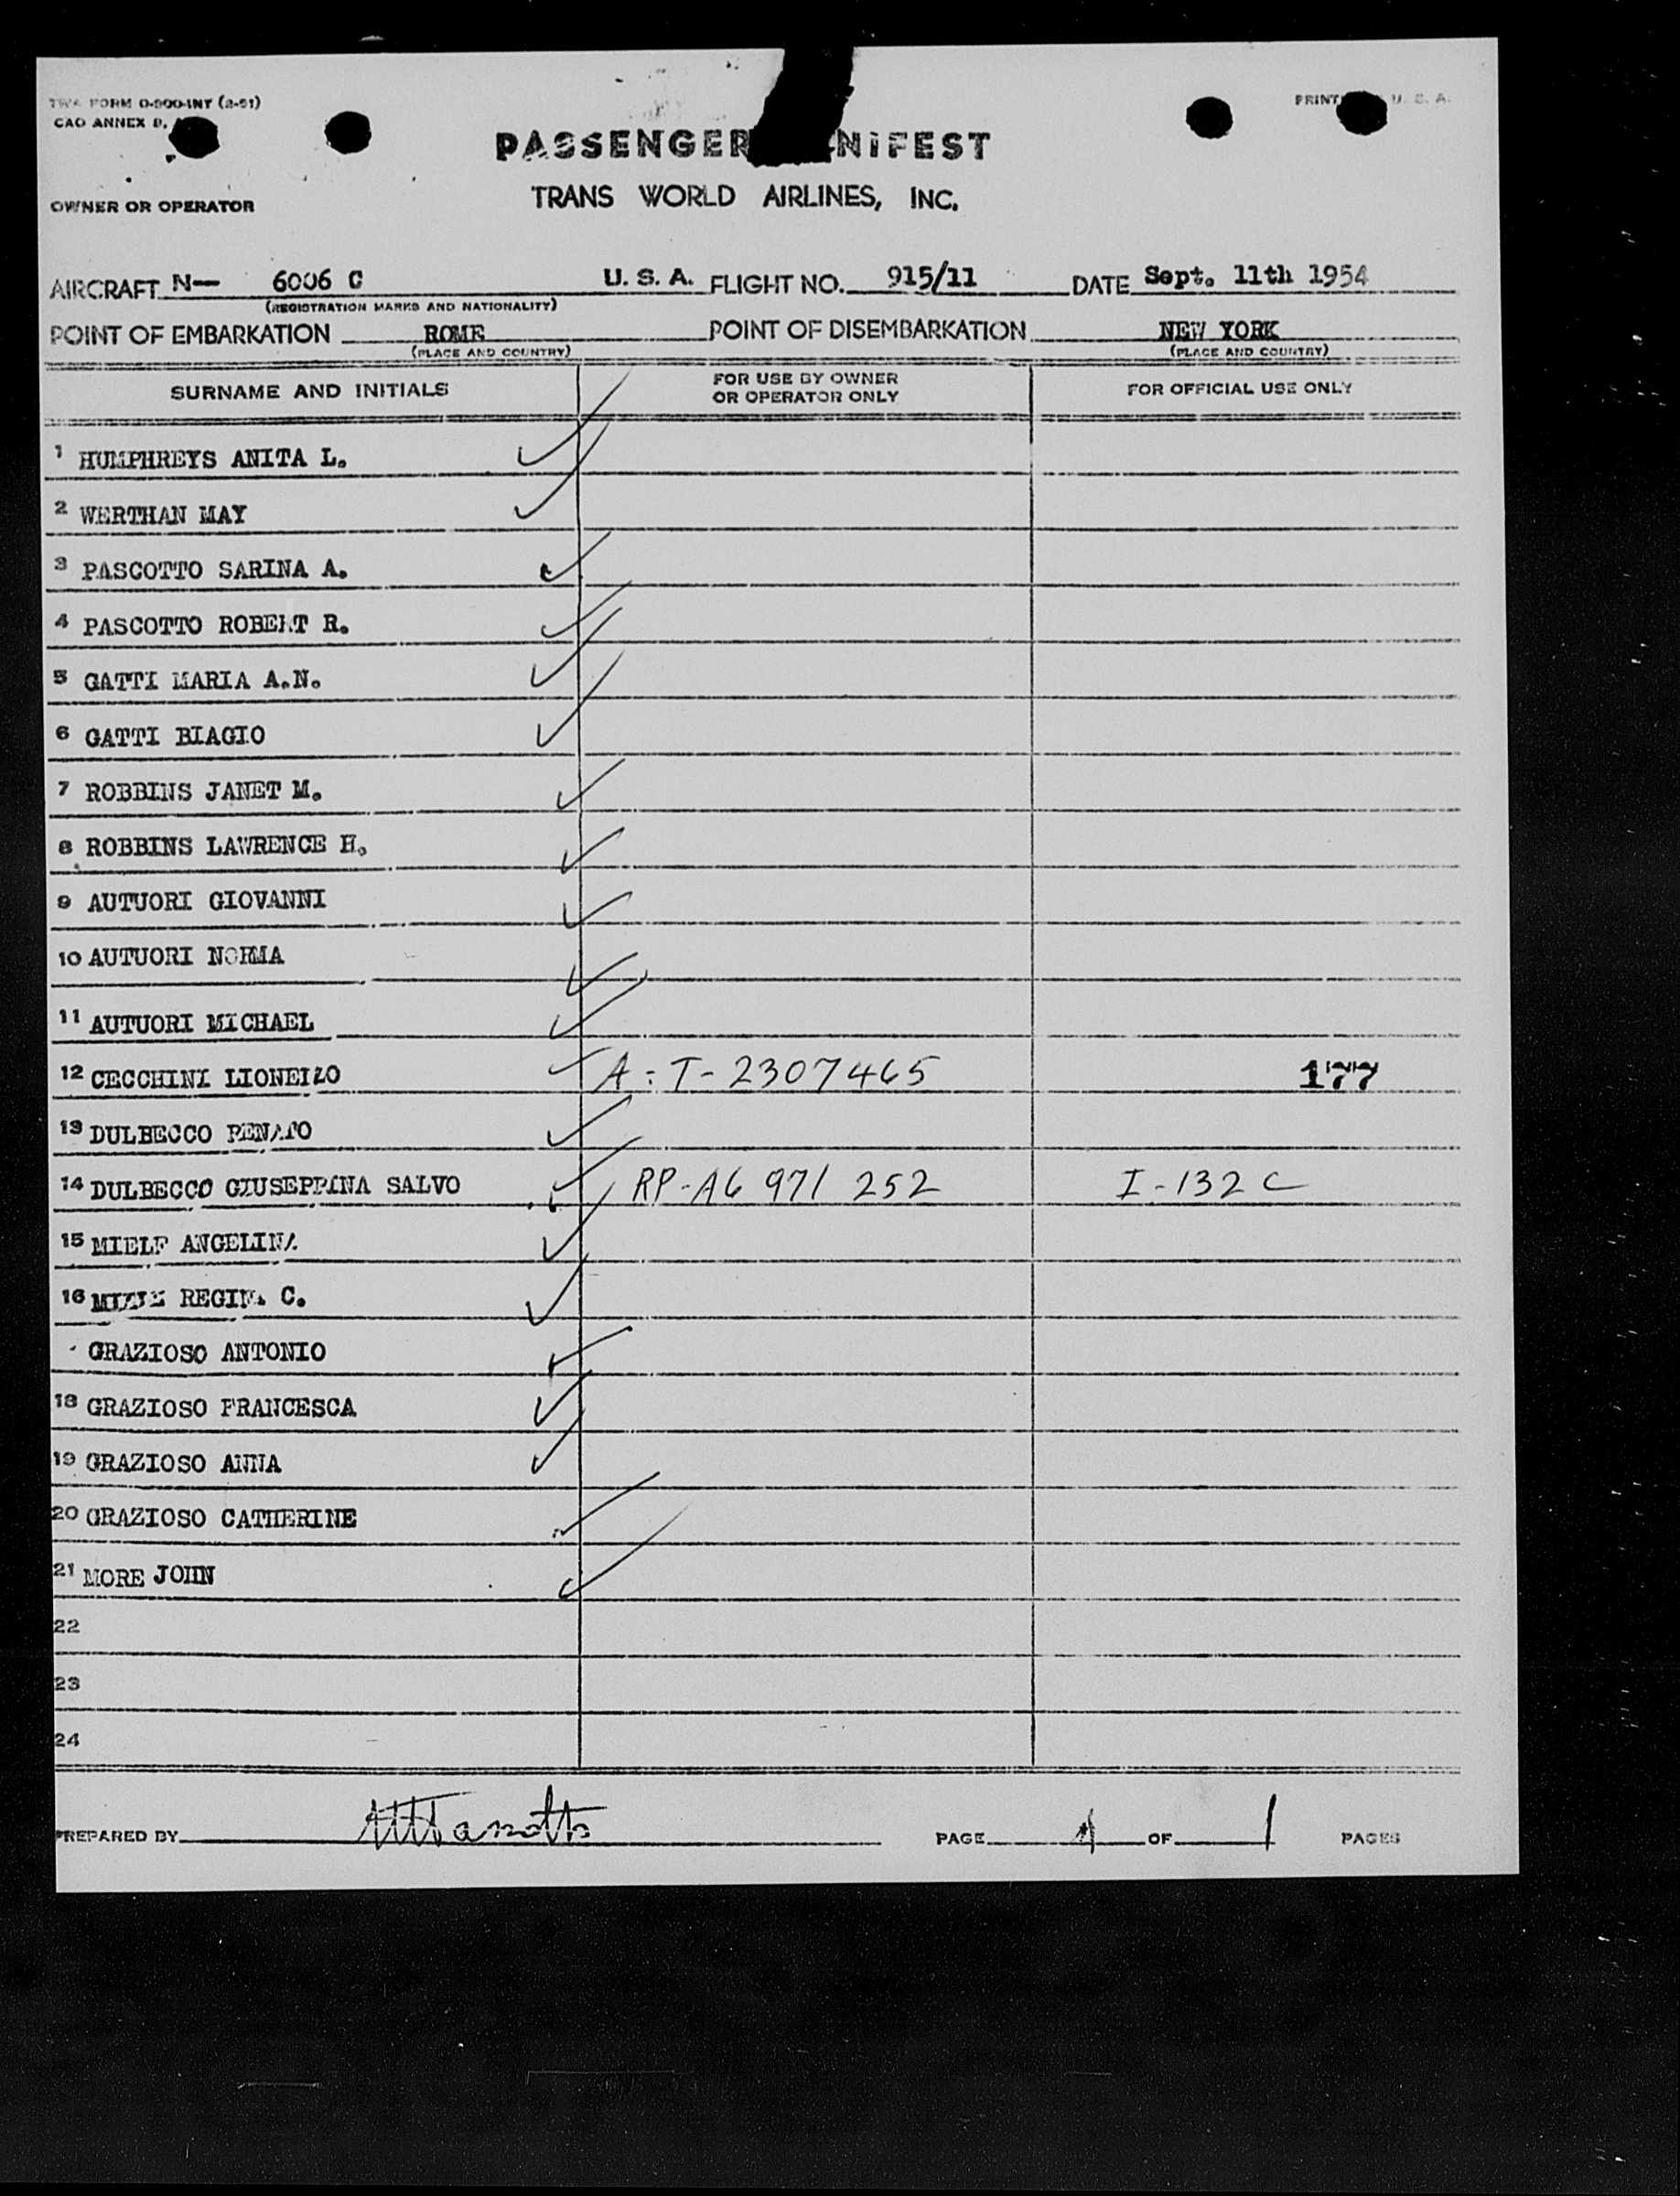 TWA FORM O-900-INT (2-51)
PRINT U. S. A.
CAO ANNEX 9,
PASSENGER NIFEST
OWNER OR OPERATOR
TRANS WORLD AIRLINES, INC.
AIRCRAFT N— 6006 C U. S. A. FLIGHT NO. 915/11 DATE Sept. 11th 1954
(REGISTRATION MARKS AND NATIONALITY)
POINT OF EMBARKATION ROME POINT OF DISEMBARKATION NEW YORK
(PLACE AND COUNTRY) (PLACE AND COUNTRY)
SURNAME AND INITIALS FOR USE BY OWNER OR OPERATOR ONLY FOR OFFICIAL USE ONLY
1 HUMPHREYS ANITA L.
2 WERTHAN MAY
3 PASCOTTO SARINA A.
4 PASCOTTO ROBERT R.
5 GATTI MARIA A.N.
6 GATTI BIAGIO
7 ROBBINS JANET M.
8 ROBBINS LAWRENCE H.
9 AUTUORI GIOVANNI
10 AUTUORI NORMA
11 AUTUORI MICHAEL
12 CECCHINI LIONELLO A:T-2307465 177
13 DULBECCO RENATO
14 DULBECCO GIUSEPPINA SALVO RP-A6 971 252 I-132 C
15 MIELE ANGELINA
16 MIELE REGINA C.
GRAZIOSO ANTONIO
18 GRAZIOSO FRANCESCA
19 GRAZIOSO ANNA
20 GRAZIOSO CATHERINE
21 MORE JOHN
22
23
24
PREPARED BY PAGE 1 OF 1 PAGES